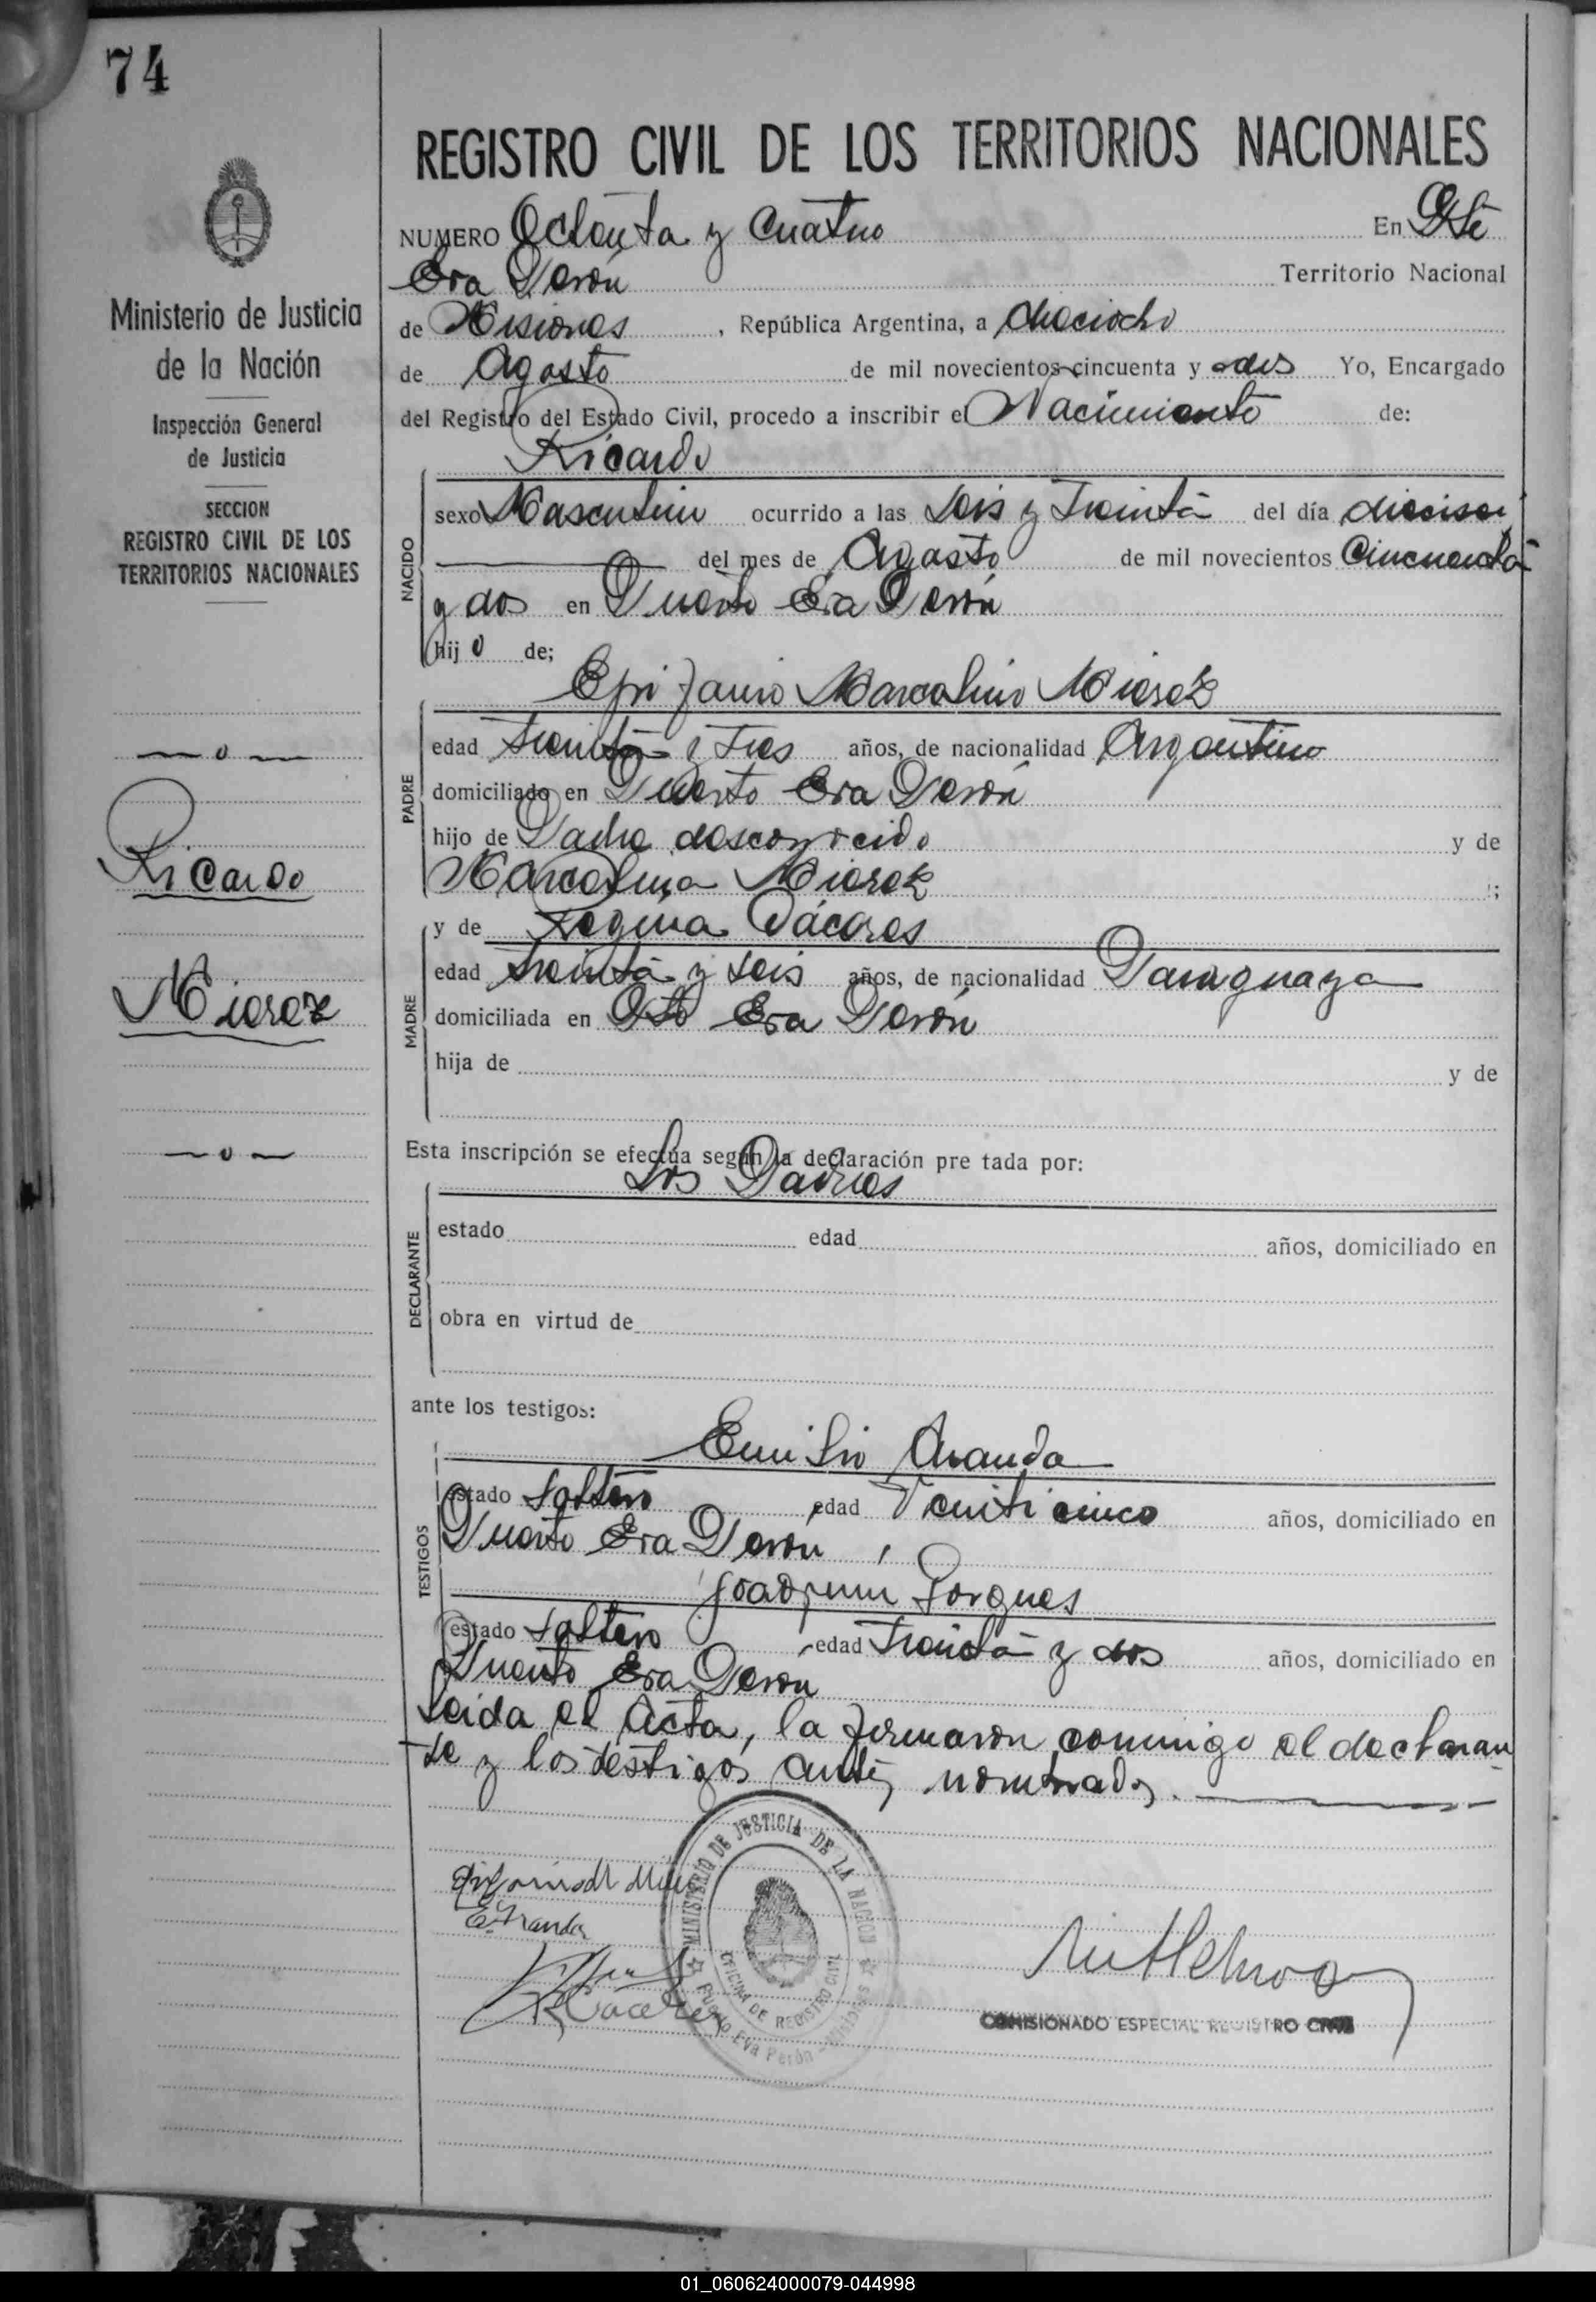 74
REGISTRO CIVIL DE LOS TERRITORIOS NACIONALES
NUMERO Ochenta y cuatro En Pto
Eva Perón Territorio Nacional
de Misiones, República Argentina, a dieciocho
de Agosto de mil novecientos cincuenta y dos Yo, Encargado
del Registro del Estado Civil, procedo a inscribir el Nacimiento de:
Ricardo
NACIDO
sexo Masculino ocurrido a las seis y treinta del día dieciseis
del mes de Agosto de mil novecientos Cincuenta
y dos en Puerto Eva Perón
hijo de;
Epifanio Marcelino
PADRE
edad treinta y tres años, de nacionalidad Argentino
domiciliado en Puerto Eva Perón
hijo de Padre desconocido y de
Marcelina
y de Regina Cáceres
MADRE
edad treinta y seis años, de nacionalidad Paraguaya
domiciliada en Pto Eva Perón
hija de y de
Esta inscripción se efectúa según la declaración pre tada por:
Los Padres
DECLARANTE
estado edad años, domiciliado en
obra en virtud de
ante los testigos:
Emilio Aranda
TESTIGOS
estado soltero edad Veinticinco años, domiciliado en
Puerto Eva Perón
Joaquin
estado soltero edad Treinta y dos años, domiciliado en
Puerto Eva Perón
Leida el Acta, la firmaron conmigo el declaran
te y los testigos antes nombrados.
Ministerio de Justicia
de la Nación
Inspección General
de Justicia
SECCION
REGISTRO CIVIL DE LOS
TERRITORIOS NACIONALES
Ricardo
E. Aranda
R Cáceres
MINISTERIO DE JUSTICIA DE LA NACION
OFICINA DE REGISTRO CIVIL
Puerto Eva Perón - Misiones
COMISIONADO ESPECIAL REGISTRO CIVIL
01_060624000079-044998